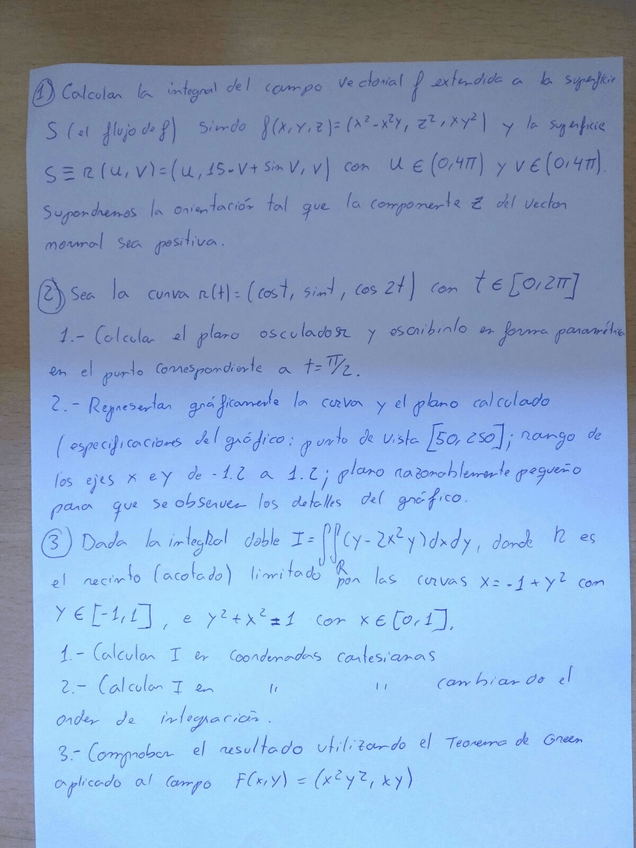 1) Calcular la integral del campo vectorial f extendida a la superficie
S (el flujo de f) siendo f(x,y,z)=(x²-x²y, z², xy²) y la superficie
S≡r(u,v)=(u,15-v+sin v, v) con u∈(0,4π) y v∈(0,4π).
Supondremos la orientación tal que la componente z del vector
normal sea positiva.
2) Sea la curva r(t)=(cost, sint, cos 2t) con t∈[0,2π]
1.- Calcular el plano osculador y escribirlo en forma paramétrica
en el punto correspondiente a t=π/2.
2.- Representar gráficamente la curva y el plano calculado
(especificaciones del gráfico: punto de vista [50,250]; rango de
los ejes x e y de -1.2 a 1.2; plano razonablemente pequeño
para que se observen los detalles del gráfico.
3) Dada la integral doble I=∬_R(y-2x²y)dxdy, donde R es
el recinto (acotado) limitado por las curvas x=-1+y² con
y∈[-1,1], e y²+x²=1 con x∈[0,1].
1.- Calcular I en coordenadas cartesianas
2.- Calcular I en " " cambiando el
orden de integración.
3.- Comprobar el resultado utilizando el Teorema de Green
aplicado al campo F(x,y)=(x²y², xy)